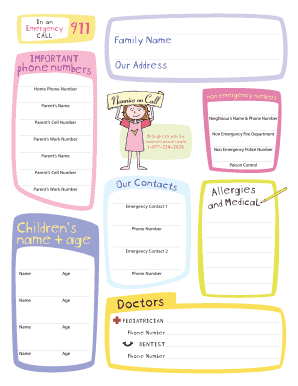 In an
Emergency
CALL
911
Family Name
Our Address
IMPORTANT
phone numbers
Home Phone Number
Parent's Name
Parent's Cell Number
Parent's Work Number
Parent's Name
Parent's Cell Number
Parent's Work Number
Nannies on Call
Brought to you by
1-877-214-2828
non emergency numbers
Neighbour's Name & Phone Number
Non Emergency Fire Department
Non Emergency Police Number
Poison Control
Our Contacts
Emergency Contact 1
Phone Number
Emergency Contact 2
Phone Number
Allergies
and Medical
Children's
name + age
Name Age
Name Age
Name Age
Name Age
Doctors
PEDIATRICIAN
Phone Number
DENTIST
Phone Number